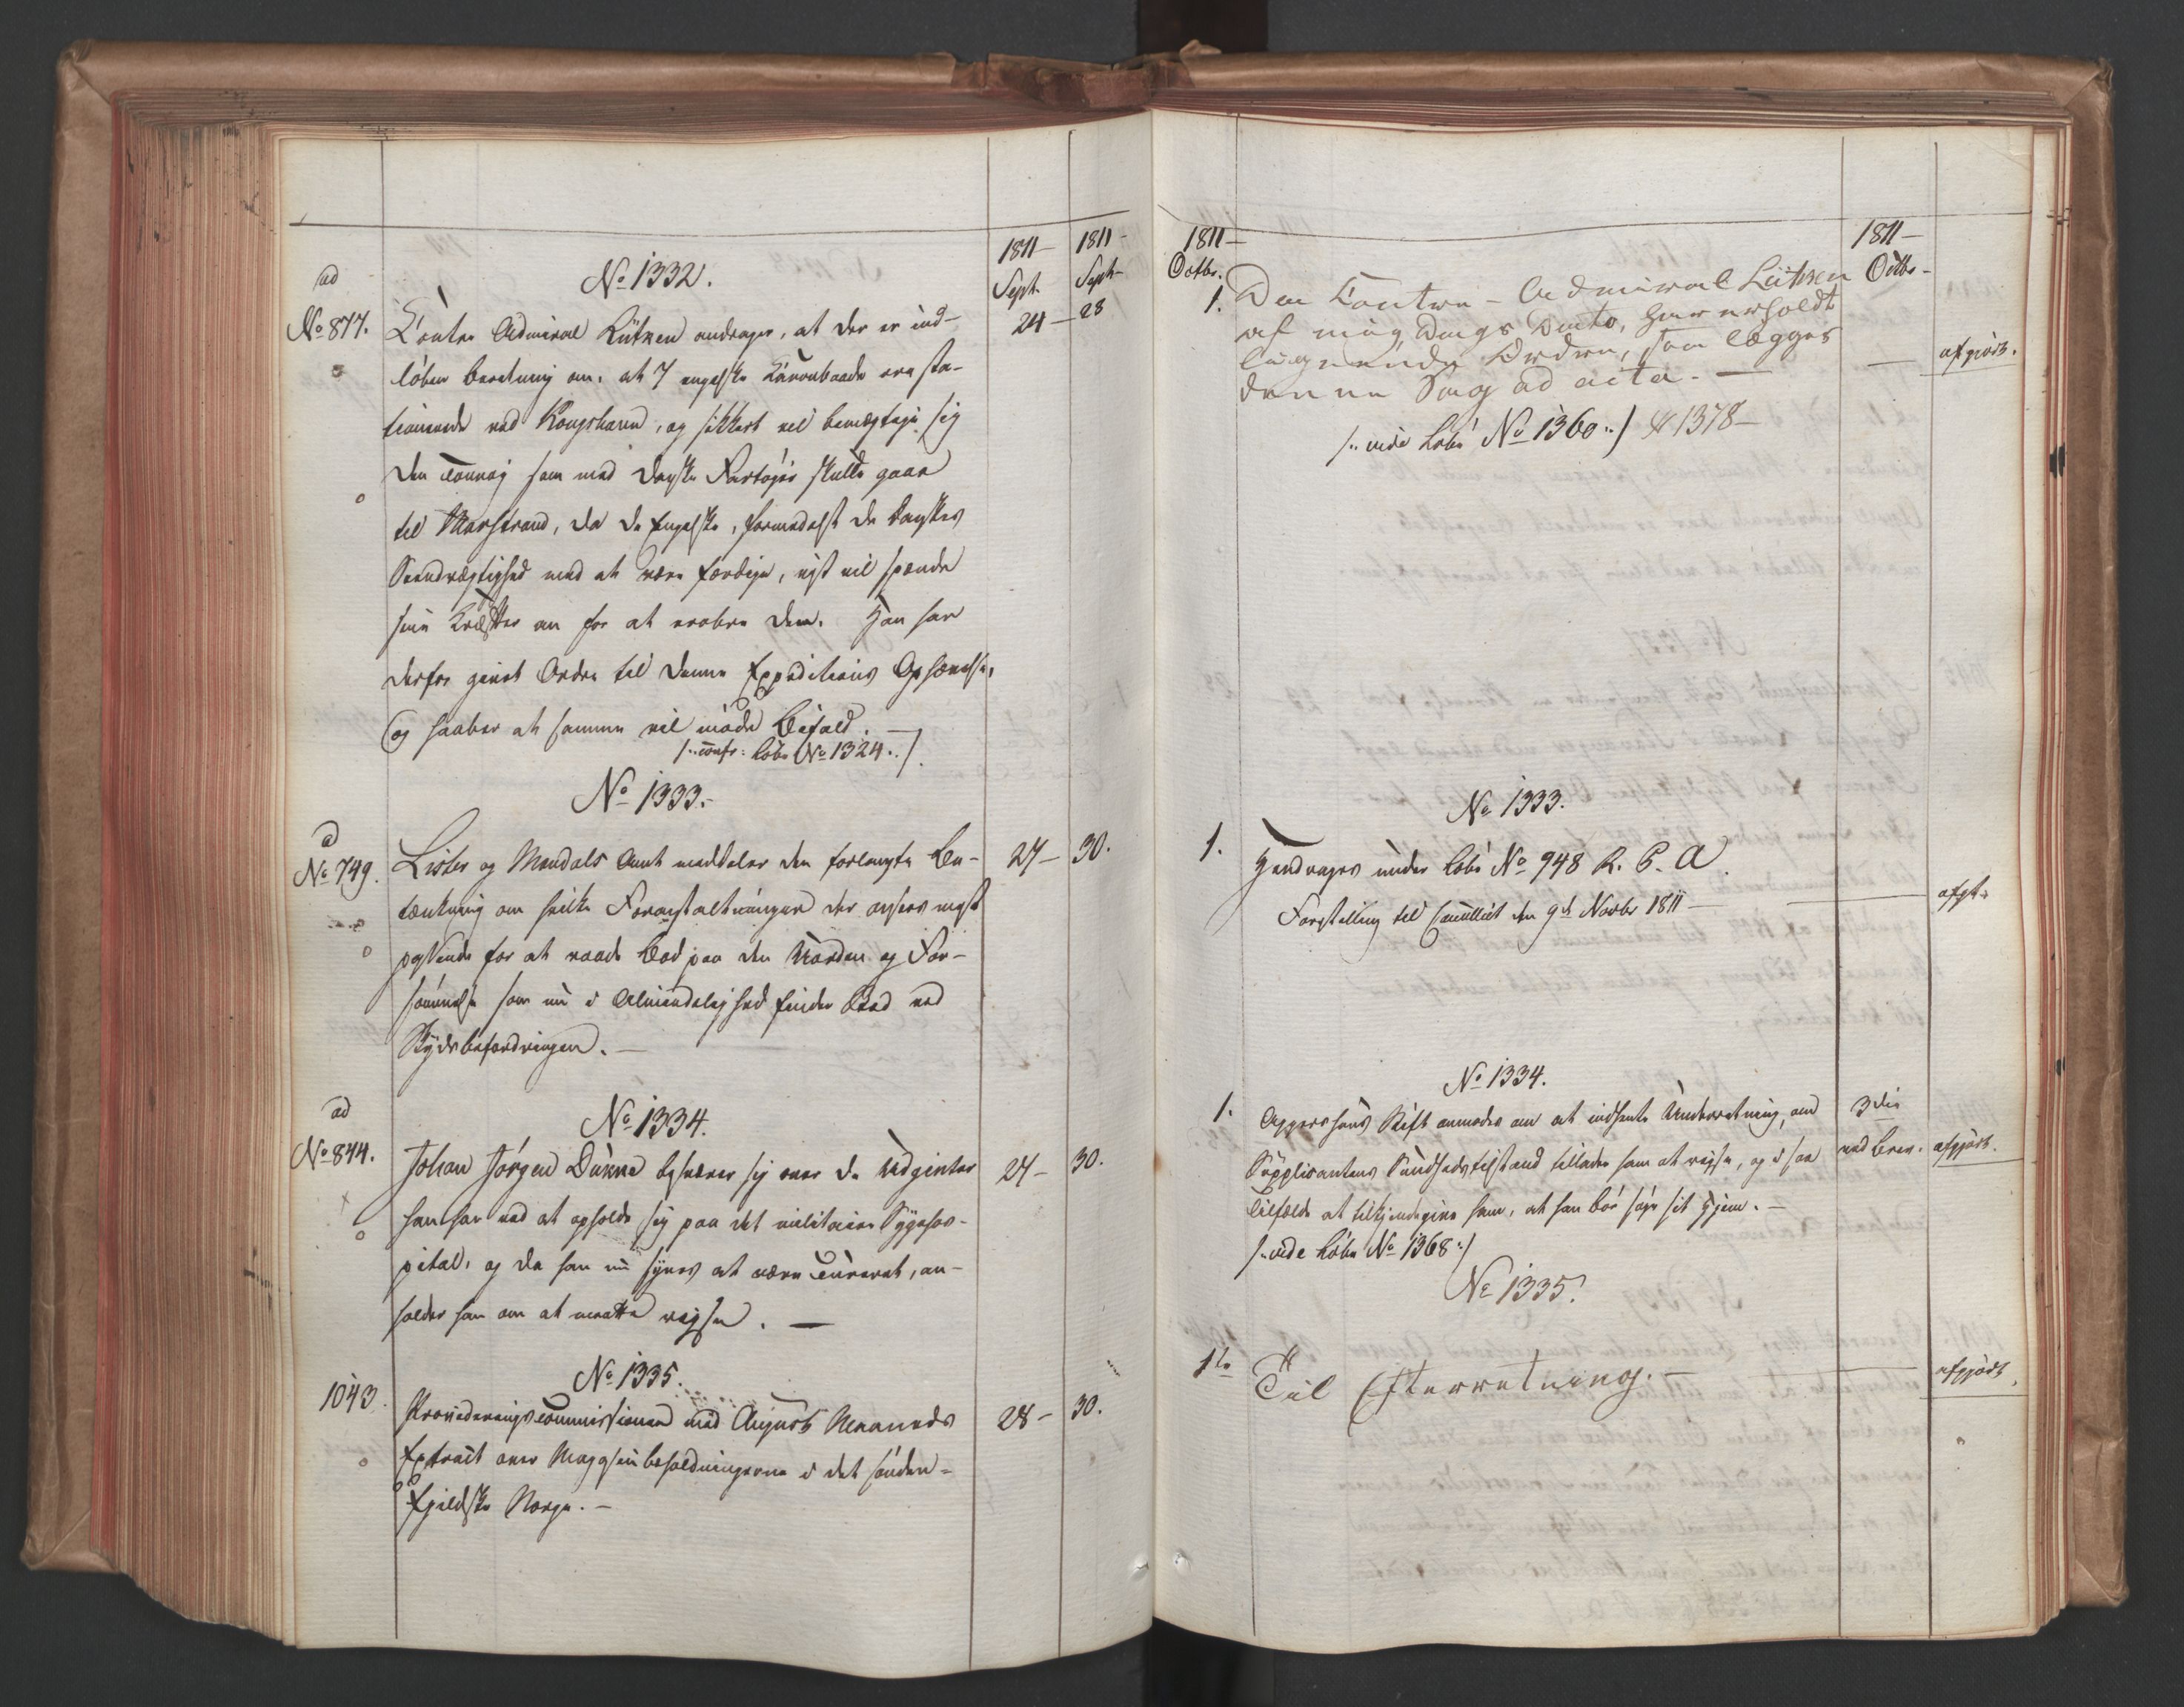 1811 –
Sept.
1811 –
Sept –
ad
No 877.
No 1332.
Contre Admiral Lütken andrager, at der er ind-
löben Beretning om, at 7 engelske Kanonbaade ere sta-
tionerede ved Kongshavn, og sikkert vil bemægtige sig
den Convoj som med danske Fartöjer skulle gaae
til Marstrand, da de Engelske, formedelst de Danskes
Seendrægtighed med at være færdige, vist vil spænde
sine Kræfter an for at erobre den. Han har
derfor givet Ordre til denne Expeditions Ophævelse,
og haaber at samme vil möde Bifald. –
/: confr: Löbe No 1324. :/
24 –
28
No 1333. –
ad
No 749.
Lister og Mandals Amt meddeler den forlangte Be-
tænkning om hvilke Foranstaltninger der ansees mest
passende for at raade Bod paa den Uorden og For-
sömmelse som nu i Almindelighed finder Sted ved
Skydsbefordringen. –
27 –
30.
No 1334.
ad
No 844.
Johan Jörgen Dükke besværer sig over de Udgivter
han har ved at opholde sig paa det militaire Sygehos-
pital, og da han nu synes at være cureret, an-
holder han om at maatte rejse. –
27 –
30.
No 1335.
1043.
Provideringscommissionen med August Maaneds
Extract over Magasinbeholdningerne i det sönden-
fjeldske Norge. –
28 –
30.
1811 –
Octbr.
1811 –
Octbr –
1.
Den Contre-Admiral Lütken
af mig, Dags Dato,
Ordre, som lægges
denne Sag ad acta. –
/: vide Löbe No 1360 :/ & 1378 –
afgiort.
No 1333.
1.
Hendrages under Löbe No 948 R. C. A.
Forestilling til Cancelliet den 9de Novbr 1811 –
afgt.
No 1334.
1.
Aggershuus Stift anmodes om at indhente Underretning, om
Supplicantens Sundhedstilstand tillader ham at rejse, og i saa
Tilfælde at tilkjendegive ham, at han bör söge sit Hjem. –
/: vide Löbe No 1368 :/
3die
ved Brev.
afgjört.
No 1335.
1te
Til Efterretning. –
afgjört.